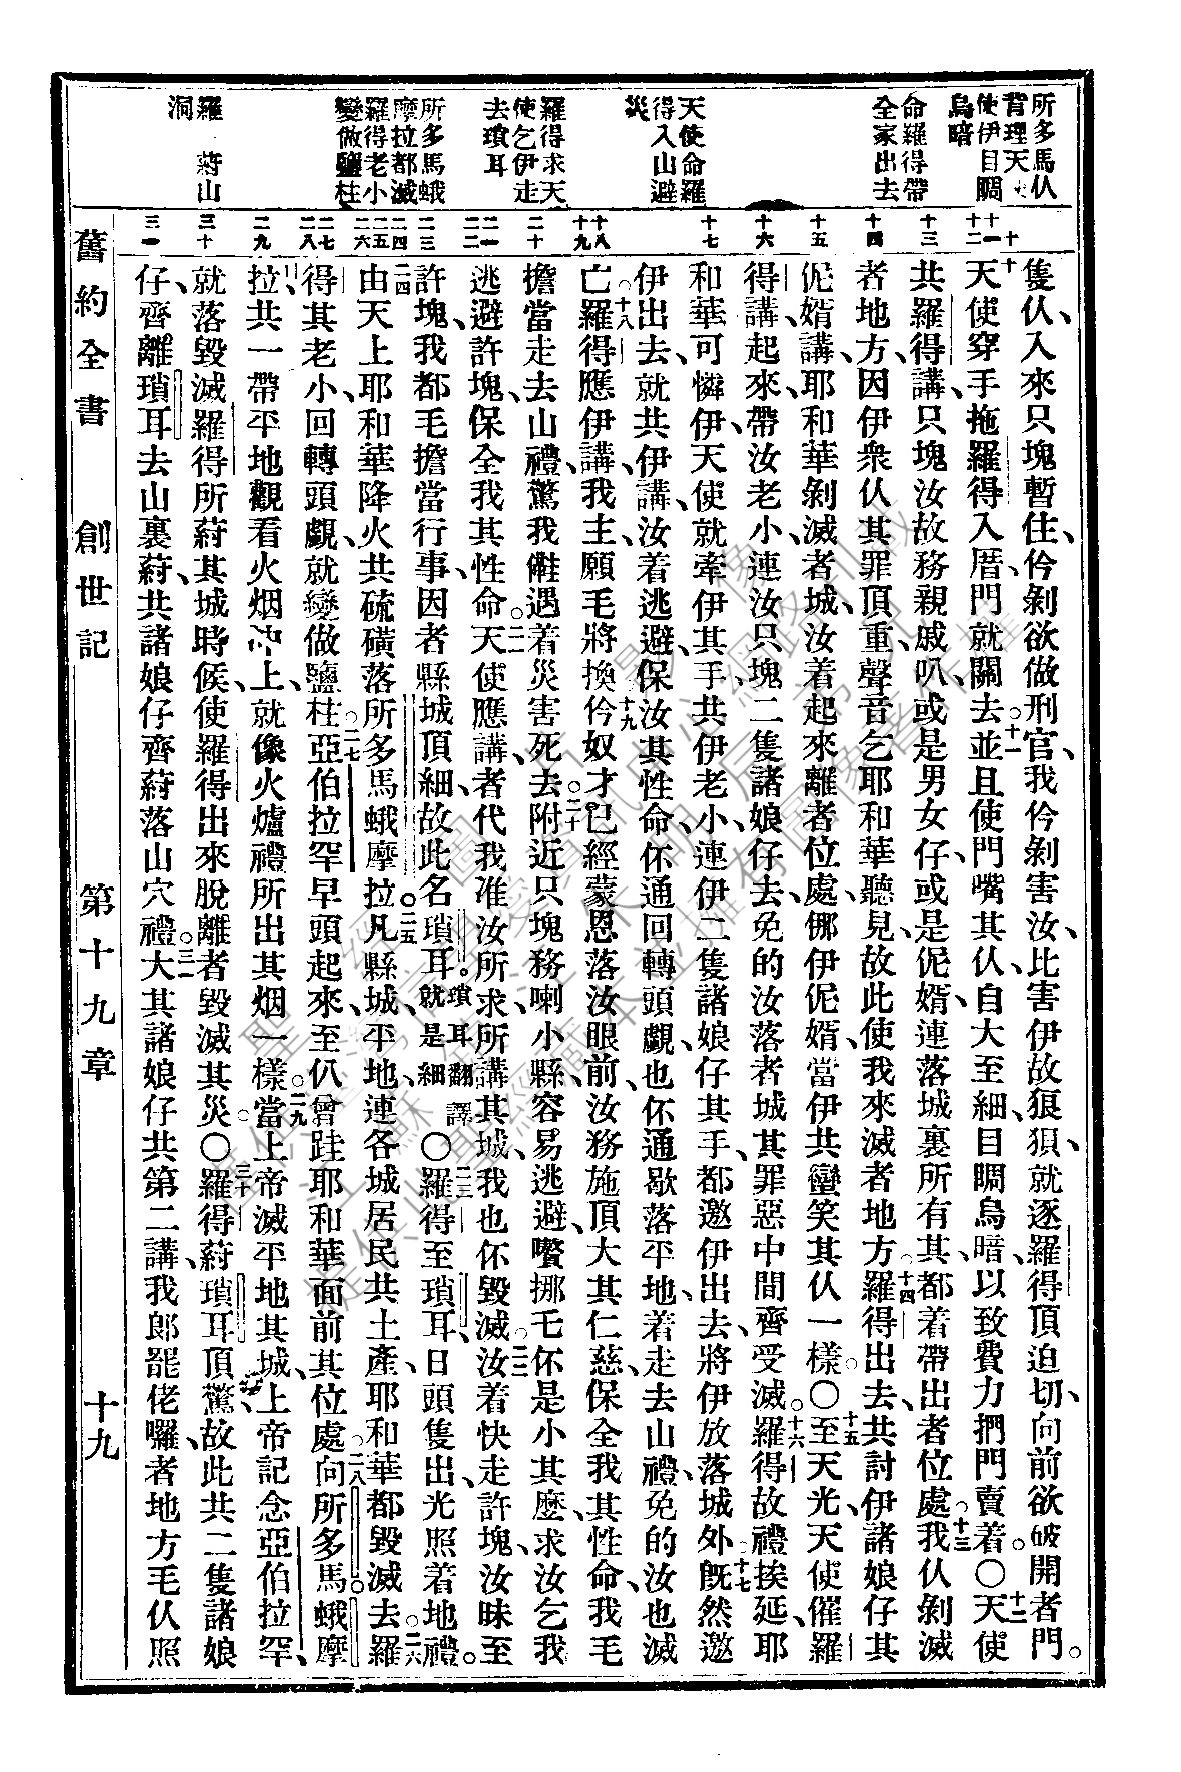 所多馬仈
背理天
使伊目睭
烏暗
命羅得帶
全家出去
天使命羅
得入山避
災
羅得求天
使乞伊走
去瑣耳
所多馬蛾
摩拉都滅
羅得老小
變做鹽柱
羅 蒶山
洞
十 十一 十二 十三 十四 十五 十六 十七 十八 十九 二十 二一 二二 二三 二四 二五 二六 二七 二八 二九 三十 三一
隻仈入來只塊暫住、伶剝欲做刑官、我伶剝害汝、比害伊故狠、狽就逐羅得頂迫切、向前欲破開者門。
十天使穿手拖羅得入厝、門就關去。十一並且使門嘴其仈自大至細、目睭烏暗、以致費力捫門賣着。〇十二天使
共羅得講、只塊汝故務親戚叭、或是男女仔、或是伲婿、連落城裏所有其、都着帶出者位處。十三我仈剝滅
者地方、因伊衆仈其罪頂重、聲音乞耶和華聽見、故此使我來滅者地方。十四羅得出去、共討伊諸娘仔其
伲婿講、耶和華剝滅者城、汝着起來離者位處、𠊎伊伲婿、當伊共蠻笑其仈一樣。〇十五至天光、天使催羅
得講、起來帶汝老小、連汝只塊二隻諸娘仔去、免的汝落者城其罪惡中間齊受滅。十六羅得故禮挨延、耶
和華可憐伊、天使就牽伊其手、共伊老小、連伊二隻諸娘仔其手、都邀伊出去、將伊放落城外。十七旣然邀
伊出去、就共伊講、汝着逃避、保汝其性命、伓通回轉頭覷、也伓通歇落平地、着走去山禮、免的汝也滅
亡。十八羅得應伊講、我主、願毛將換伶。十九奴才已經蒙恩落汝眼前、汝務施頂大其仁慈、保全我其性命、我毛
擔當走去山禮、驚我儺遇着災害死去。二十附近只塊務喇小縣、容易逃避、嚽挪乇伓是小其麼、求汝乞我
逃避許塊、保全我其性命。二一天使應講、者代我准汝所求、所講其城、我也伓毀滅。二二汝着快走許塊、汝昧至
許塊、我都毛擔當行事、因者縣城頂細、故此名瑣耳。瑣耳翻譯就是細〇二三羅得至瑣耳、日頭隻出、光照着地禮。
二四由天上耶和華降火共硫磺、落所多馬蛾摩拉。二五凡縣城、平地、連各城居民、共土產、耶和華都毀滅去。二六羅
得其老小回轉頭覷、就變做鹽柱。二七亞伯拉罕早頭起來、至仈曾跬耶和華面前其位處、二八向所多馬蛾摩
拉、共一帶平地觀看、火烟冲上、就像火爐禮所出其烟一樣。二九當上帝滅平地其城、上帝記念亞伯拉罕、
就落毀滅羅得所蒶其城時候、使羅得出來、脫離者毀滅其災。〇三十羅得蒶瑣耳頂驚、故此共二隻諸娘
仔、齊離瑣耳去山裏蒶、共諸娘仔齊蒶落山穴禮。三一大其諸娘仔共第二講、我郎罷佬囉、者地方毛仈照
舊約全書 創世記 第十九章 十九